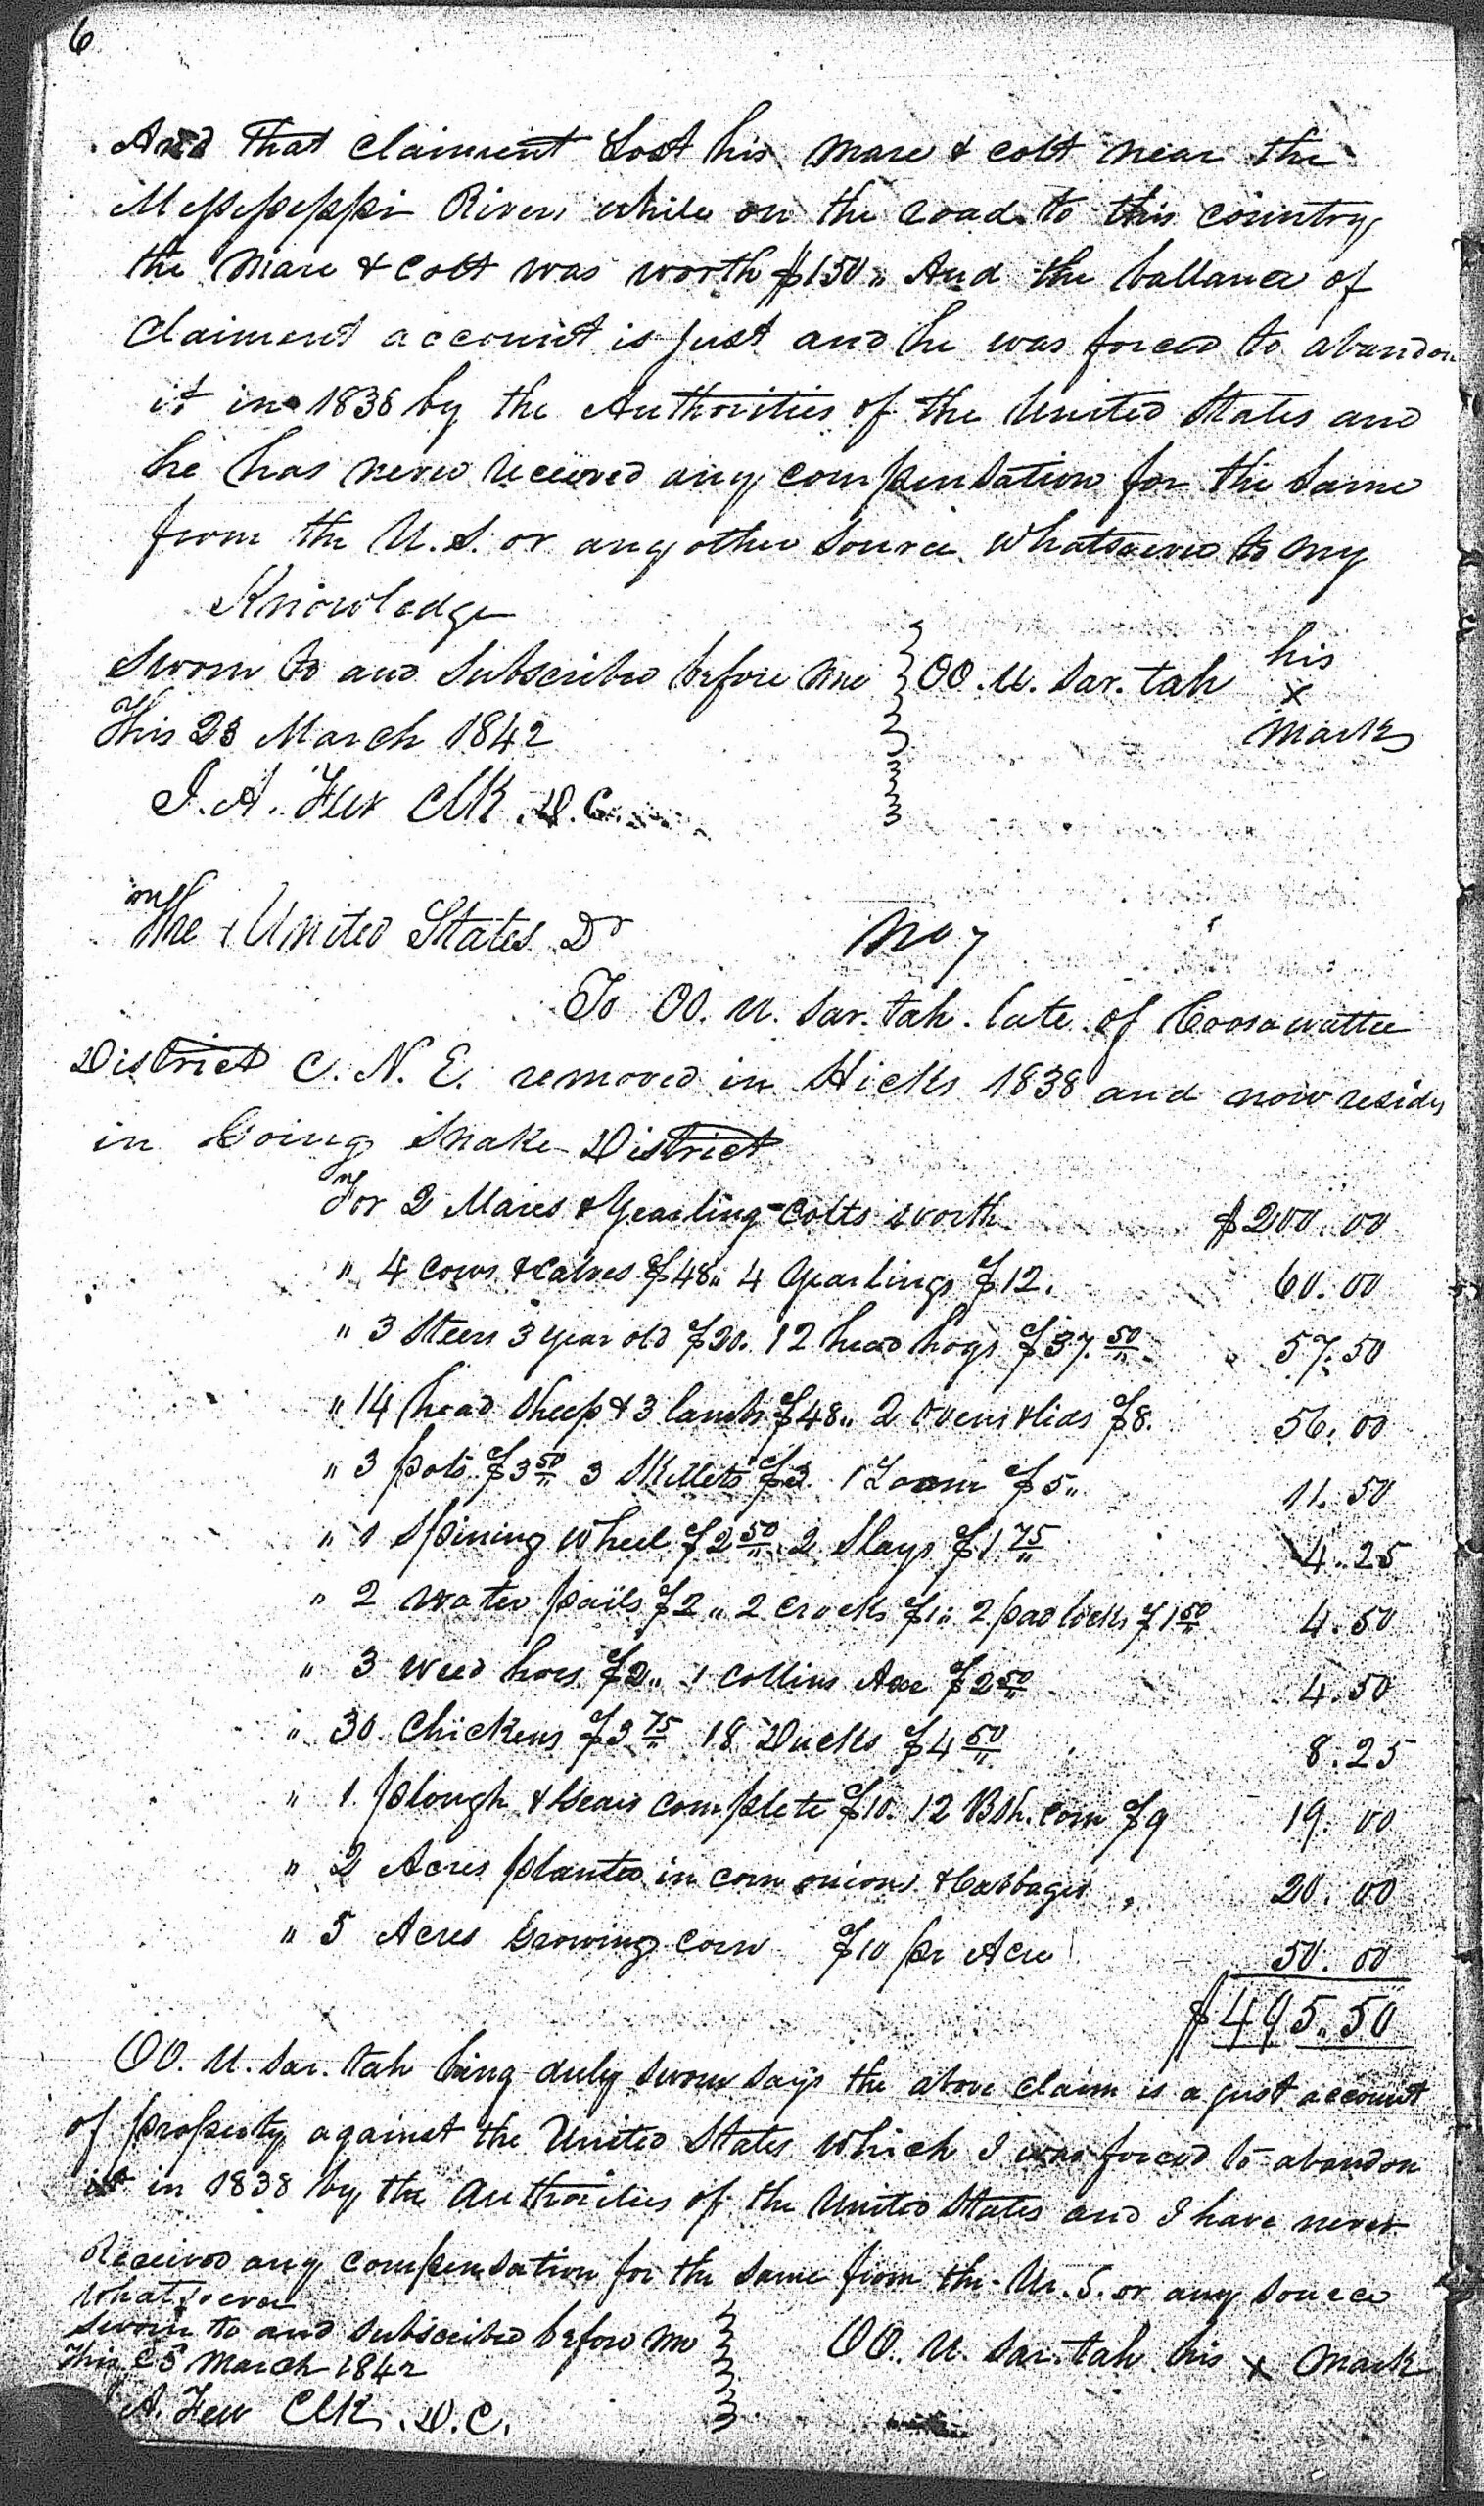 6
And that claiment Lost his mare & colt near the
Messessippi River while on the road to this country
the mare & Colt was worth $150,, And the ballance of
Claiment account is just and he was forced to abandon
it in 1838 by the Authorities of the United States and
he has never received any compensation for the same
from the U.S. or any other source whatsoever to my
Knowledge
Sworn to and subscribed before me OO.U.sar.tah his
x
This 23 March 1842 mark
J.A. Few Clk. D.C.
The United States Dr No 7
To OO.U.sar.tah. late of Coosawattee
District C.N.E. removed in Hicks 1838 and now resides
in Going Snake District
For 2 Mares & Yearling Colts worth $200.00
" 4 cows & calves $48,, 4 Yearlings $12. 60.00
" 3 Steers 3 year old $20. 12 head hogs $37.50 57.50
" 14 head sheep & 3 lambs $48,, 2 ovens & lids $8. 56.00
" 3 pots $3 50 3 Skillets $3. 1 Loom $5,, 11.50
" 1 Spining Wheel $2 50 2 Slays $1 75 4.25
" 2 water pails $2,, 2 crocks $1,, 2 pad locks $1 50 4.50
" 3 weed hoes $2,, 1 Collins Axe $2 50 4.50
" 30 Chickens $3 75 18 Ducks $4 50 8.25
" 1 plough & Gears complete $10. 12 Bsh. corn $9 19.00
" 2 Acres planted in corn onions & Cabbages 20.00
" 5 Acres Growing corn $10 pr Acre 50.00
$495.50
OO.U.sar.tah being duly sworn says the above claim is a just account
of property against the United States which I was forced to abandon
it in 1838 by the Authorities of the United States and I have never
Received any compensation for the same from the U.S. or any source
whatsoever
Sworn to and subscribed before me OO.U.sar.tah his x mark
This March 1842
A. Few Clk. D.C.